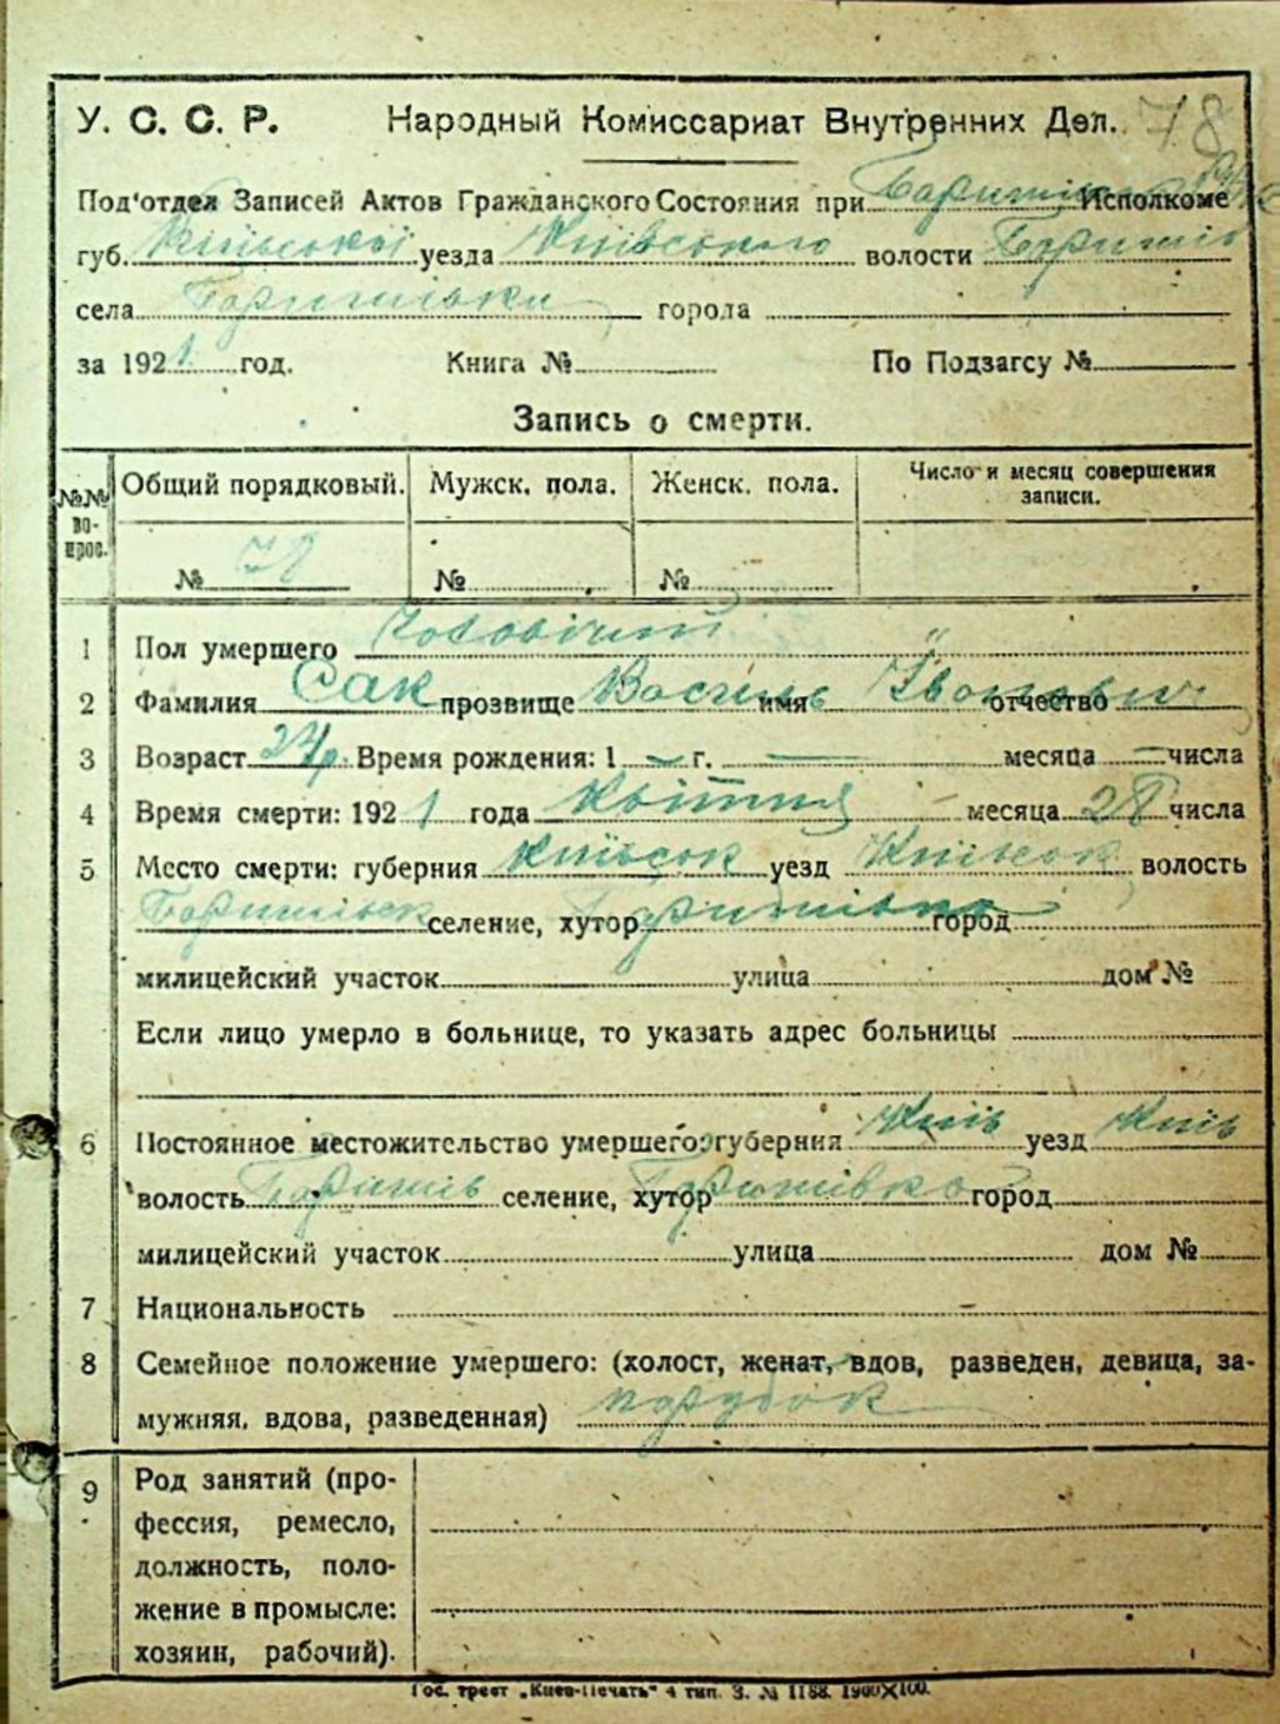 У. С. С. Р. Народный Комиссариат Внутренних Дел. 78
Под'отдел Записей Актов Гражданского Состояния при Исполкоме
губ. Київської уезда Київського волости
села города
за 1921 год. Книга № По Подзагсу №
Запись о смерти.
№№ во-прос. Общий порядковый. Мужск. пола. Женск. пола. Число и месяц совершения записи.
№ 78 № №
1 Пол умершего Чоловічий
2 Фамилия Сак прозвище Василь имя Іванович отчество
3 Возраст 23 р. Время рождения: 1 — г. — месяца — числа
4 Время смерти: 1921 года Квітня месяца 28 числа
5 Место смерти: губерния Київськ уезд Київськ волость
селение, хутор город
милицейский участок улица дом №
Если лицо умерло в больнице, то указать адрес больницы
6 Постоянное местожительство умершего: губерния Київ уезд Київ
волость селение, хутор город
милицейский участок улица дом №
7 Национальность
8 Семейное положение умершего: (холост, женат, вдов, разведен, девица, за-
мужняя, вдова, разведенная) парубок
9 Род занятий (про-
фессия, ремесло,
должность, поло-
жение в промысле:
хозяин, рабочий).
Гос. трест „Киев-Печать" 4 тип. З. № 1188. 1900×100.